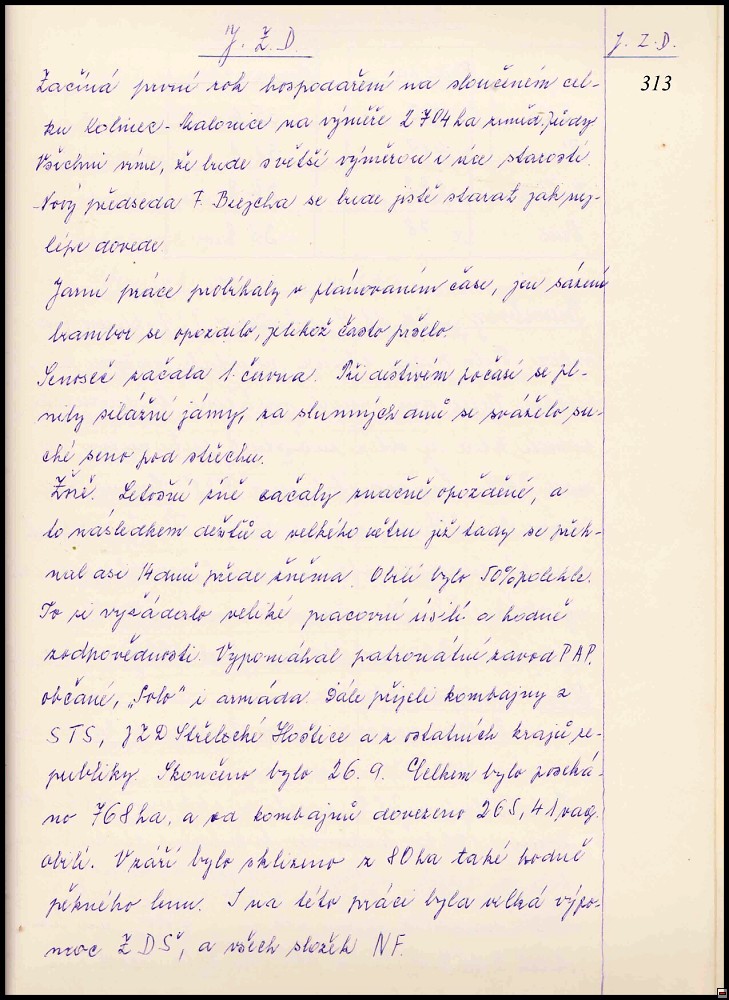 J. Z. D.
J. Z. D.
313
Začíná první rok hospodaření na sloučeném cel-
ku Kolinec - Malonice na výměře 2 704 ha zeměd. půdy
Všichni víme, že bude s větší výměrou i více starostí.
Nový předseda F. Brejcha se bude jistě starat jak nej-
lépe dovede
Jarní práce probíhaly v plánovaném čase, jen sázení
brambor se opozdilo, jelikož často pršelo.
Senoseč začala 1. června. Při deštivém počasí se pl-
nily silážní jámy, za slunných dnů se sváželo su-
ché seno pod střechu.
Žně. Letošní žně začaly značně opožděné, a
to následkem dešťů a velkého větru jež tady se přeh-
nal asi 14 dnů přede žněma. Obilí bylo 50% polehlé.
To si vyžádalo veliké pracovní úsilí a hodně
zodpovědnosti. Vypomáhal patronátní závod PAP,
občané, "Solo" i armáda. Dále přijeli kombajny z
STS, JZD Střelecké Hoštice a z ostatních krajů re-
publiky. Skončeno bylo 26. 9. Celkem bylo poseká-
no 768 ha, a od kombajnů dovezeno 265,41 vag.
obilí. V září bylo sklizeno z 80 ha také hodně
pěkného lenu. I na této práci byla velká výpo-
moc ZDŠ, a všech složek NF.